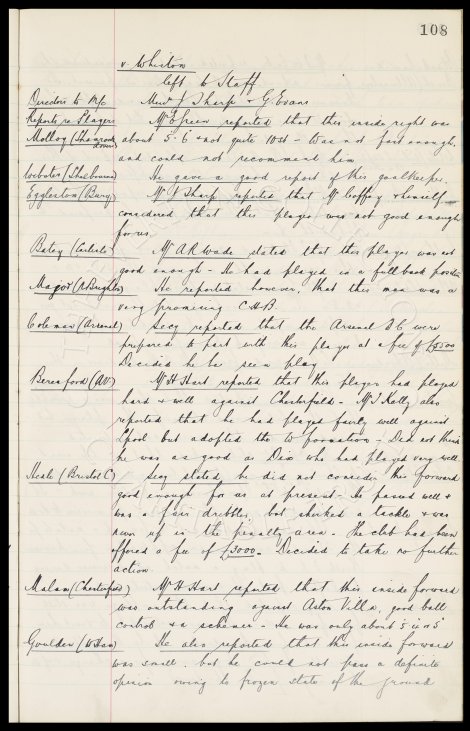 108
v. Whiston
left to Staff
Directors to M/c Messrs J Sharp & G Evans
Reports re Players Mr E Green reported that this inside right was
Molloy (Shamrock about 5' 6" & not quite 10st - was not fast enough,
and could not recommend him
Webster (Shelbourne) He gave a good report of this goalkeeper.
Egglerton (Bury) Mr J Sharp reported that Mr & himself
considered that this player was not good enough
for us.
Batey (Carlisle) Mr A R Wade stated that this player was not
good enough - He had played in a full back position
Magor (N Brighton) He reported however, that this man was a
very promising C.H.B.
Coleman (Arsenal) Secy reported that the Arsenal F C were
prepared to part with this player at a fee of £3500
Decided he be seen play
Beresford (AV.) Mr H Hart reported that this player had played
hard & well against Chesterfield - Mr J Kelly also
reported that he had played fairly well against
Lpool but adopted the W formation - Did not think
he was as good as Dix who had played very well.
Heale (Bristol C) Secy stated he did not consider this forward
good enough for us at present - He passed well &
was a fair dribbler, but shirked a tackle & was
never up in the penalty area. - The club had been
offered a fee of £3000. Decided to take no further
action.
Malam (Chesterfield) Mr H Hart reported that this inside forward
was outstanding against Aston Villa, good ball
control & a schemer - He was only about 5'
Goulden (W Ham) He also reported that this inside forward
was small, but he could not pass a definite
opinion owing to frozen state of the ground